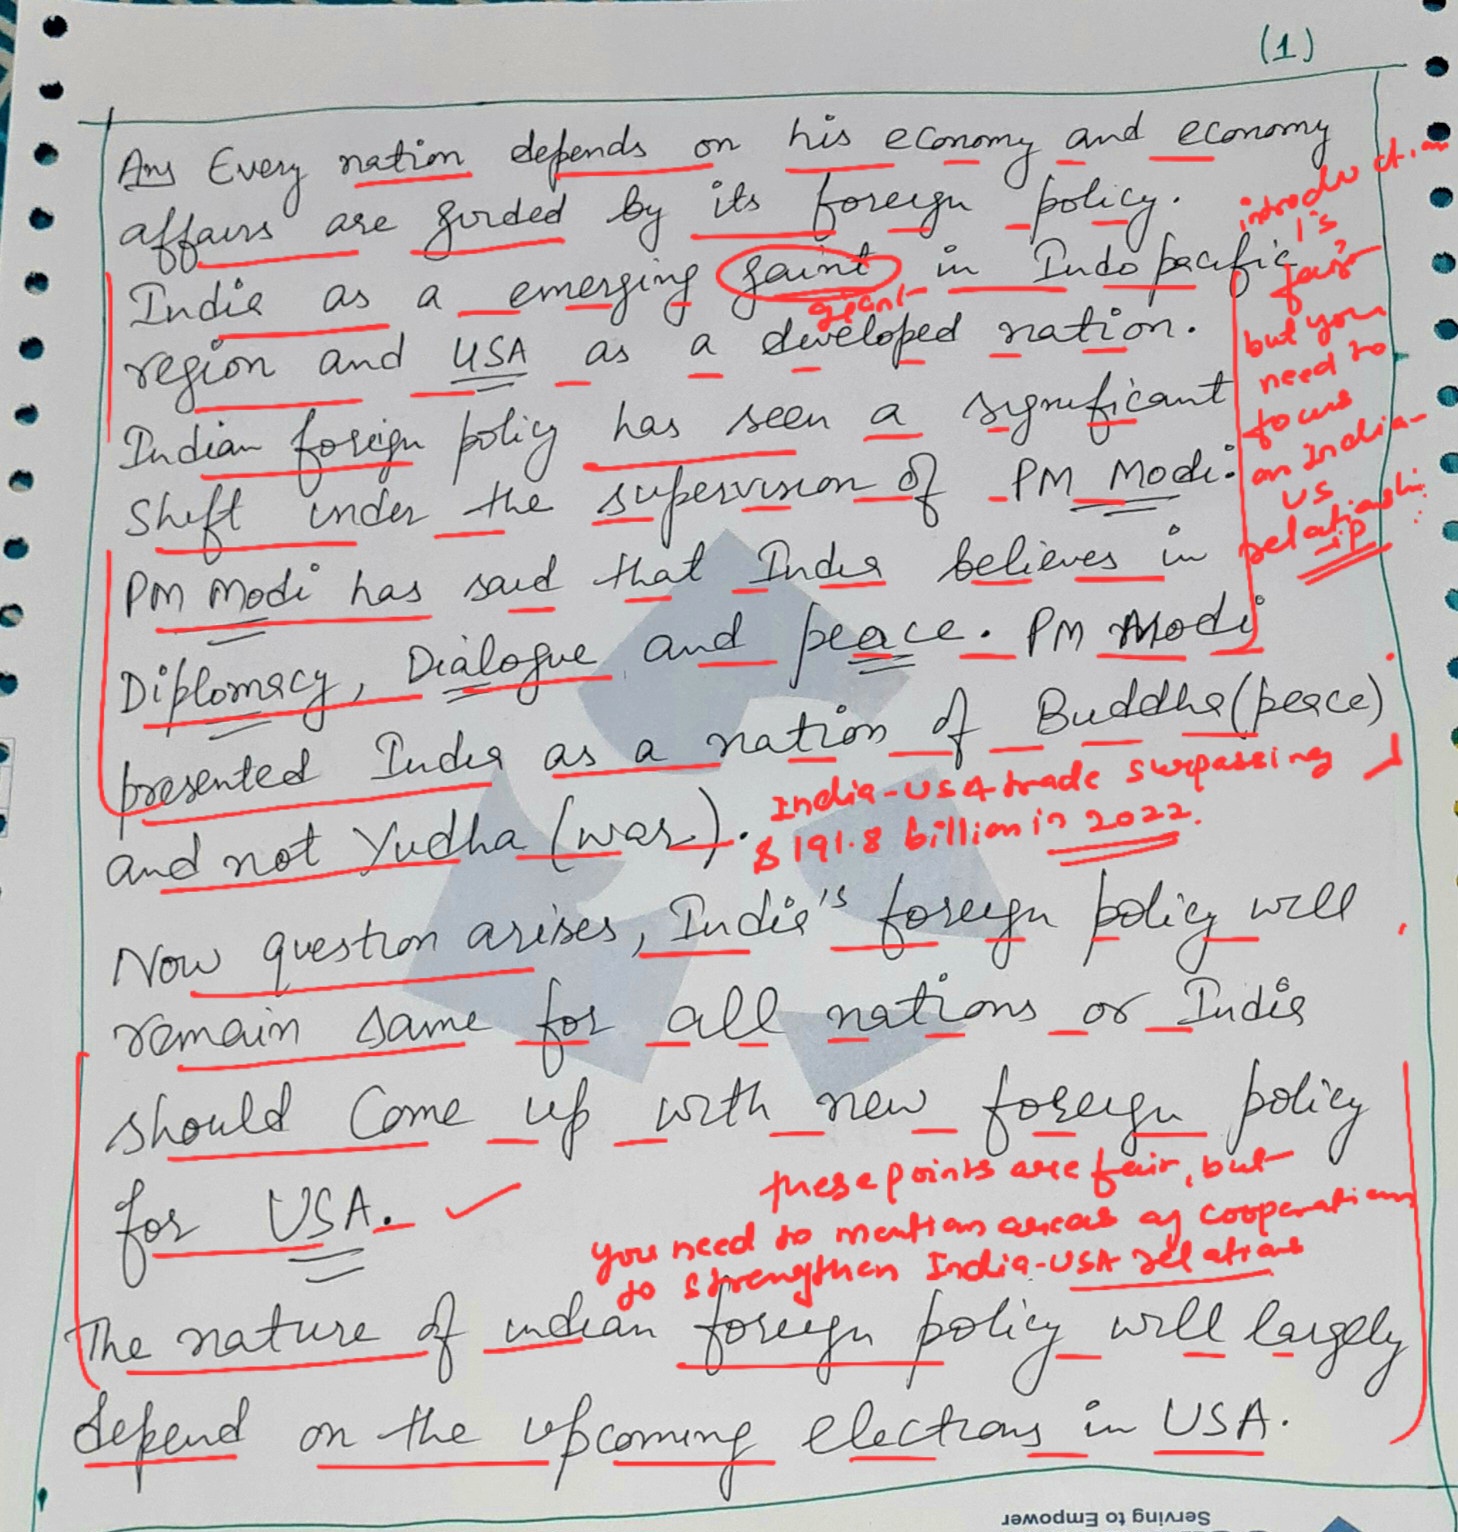 (1)
Ans Every nation depends on his economy and economy
affairs are guided by its foreign policy.
India as a emerging gaint in Indo pacific
giant
region and USA as a developed nation.
Indian foreign policy has seen a significant
Shift under the supervision of PM Modi.
introduction
is
fair
but you
need to
focus
on India-
US
relationsh
ip
PM Modi has said that India believes in
Diplomacy, Dialogue and peace. PM Modi
presented India as a nation of Buddha (peace)
and not Yudha (war).
India-USA trade surpassing
$191.8 billion in 2022.
Now question arises, India's foreign policy will
remain same for all nations or India
should Come up with new foreign policy
for USA.
these points are fair, but
you need to mention areas of cooperation
to strengthen India-USA relations
The nature of indian foreign policy will largely
depend on the upcoming elections in USA.
Serving to Empower